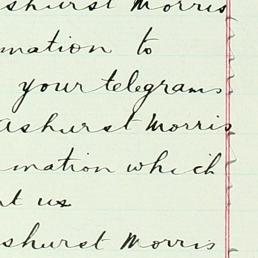 shurst Morris
mation to
your telegrams
Ashurst Morris
mation which
nt us
shurst Morris